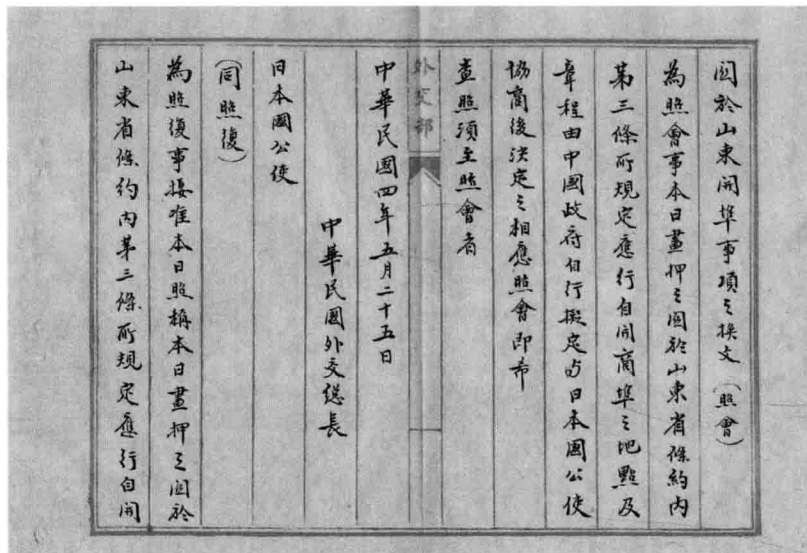 関於山東開埠事項之換文（照會）
為照會事本日畫押之関於山東省條約内
第三條所規定應行自開商埠之地點及
章程由中國政府自行擬定與日本國公使
協商後決定之相應照會即希
查照須至照會者
外交部
中華民國四年五月二十五日
中華民國外交總長
日本國公使
（同照復）
為照復事接准本日照稱本日畫押之関於
山東省條約内第三條所規定應行自開